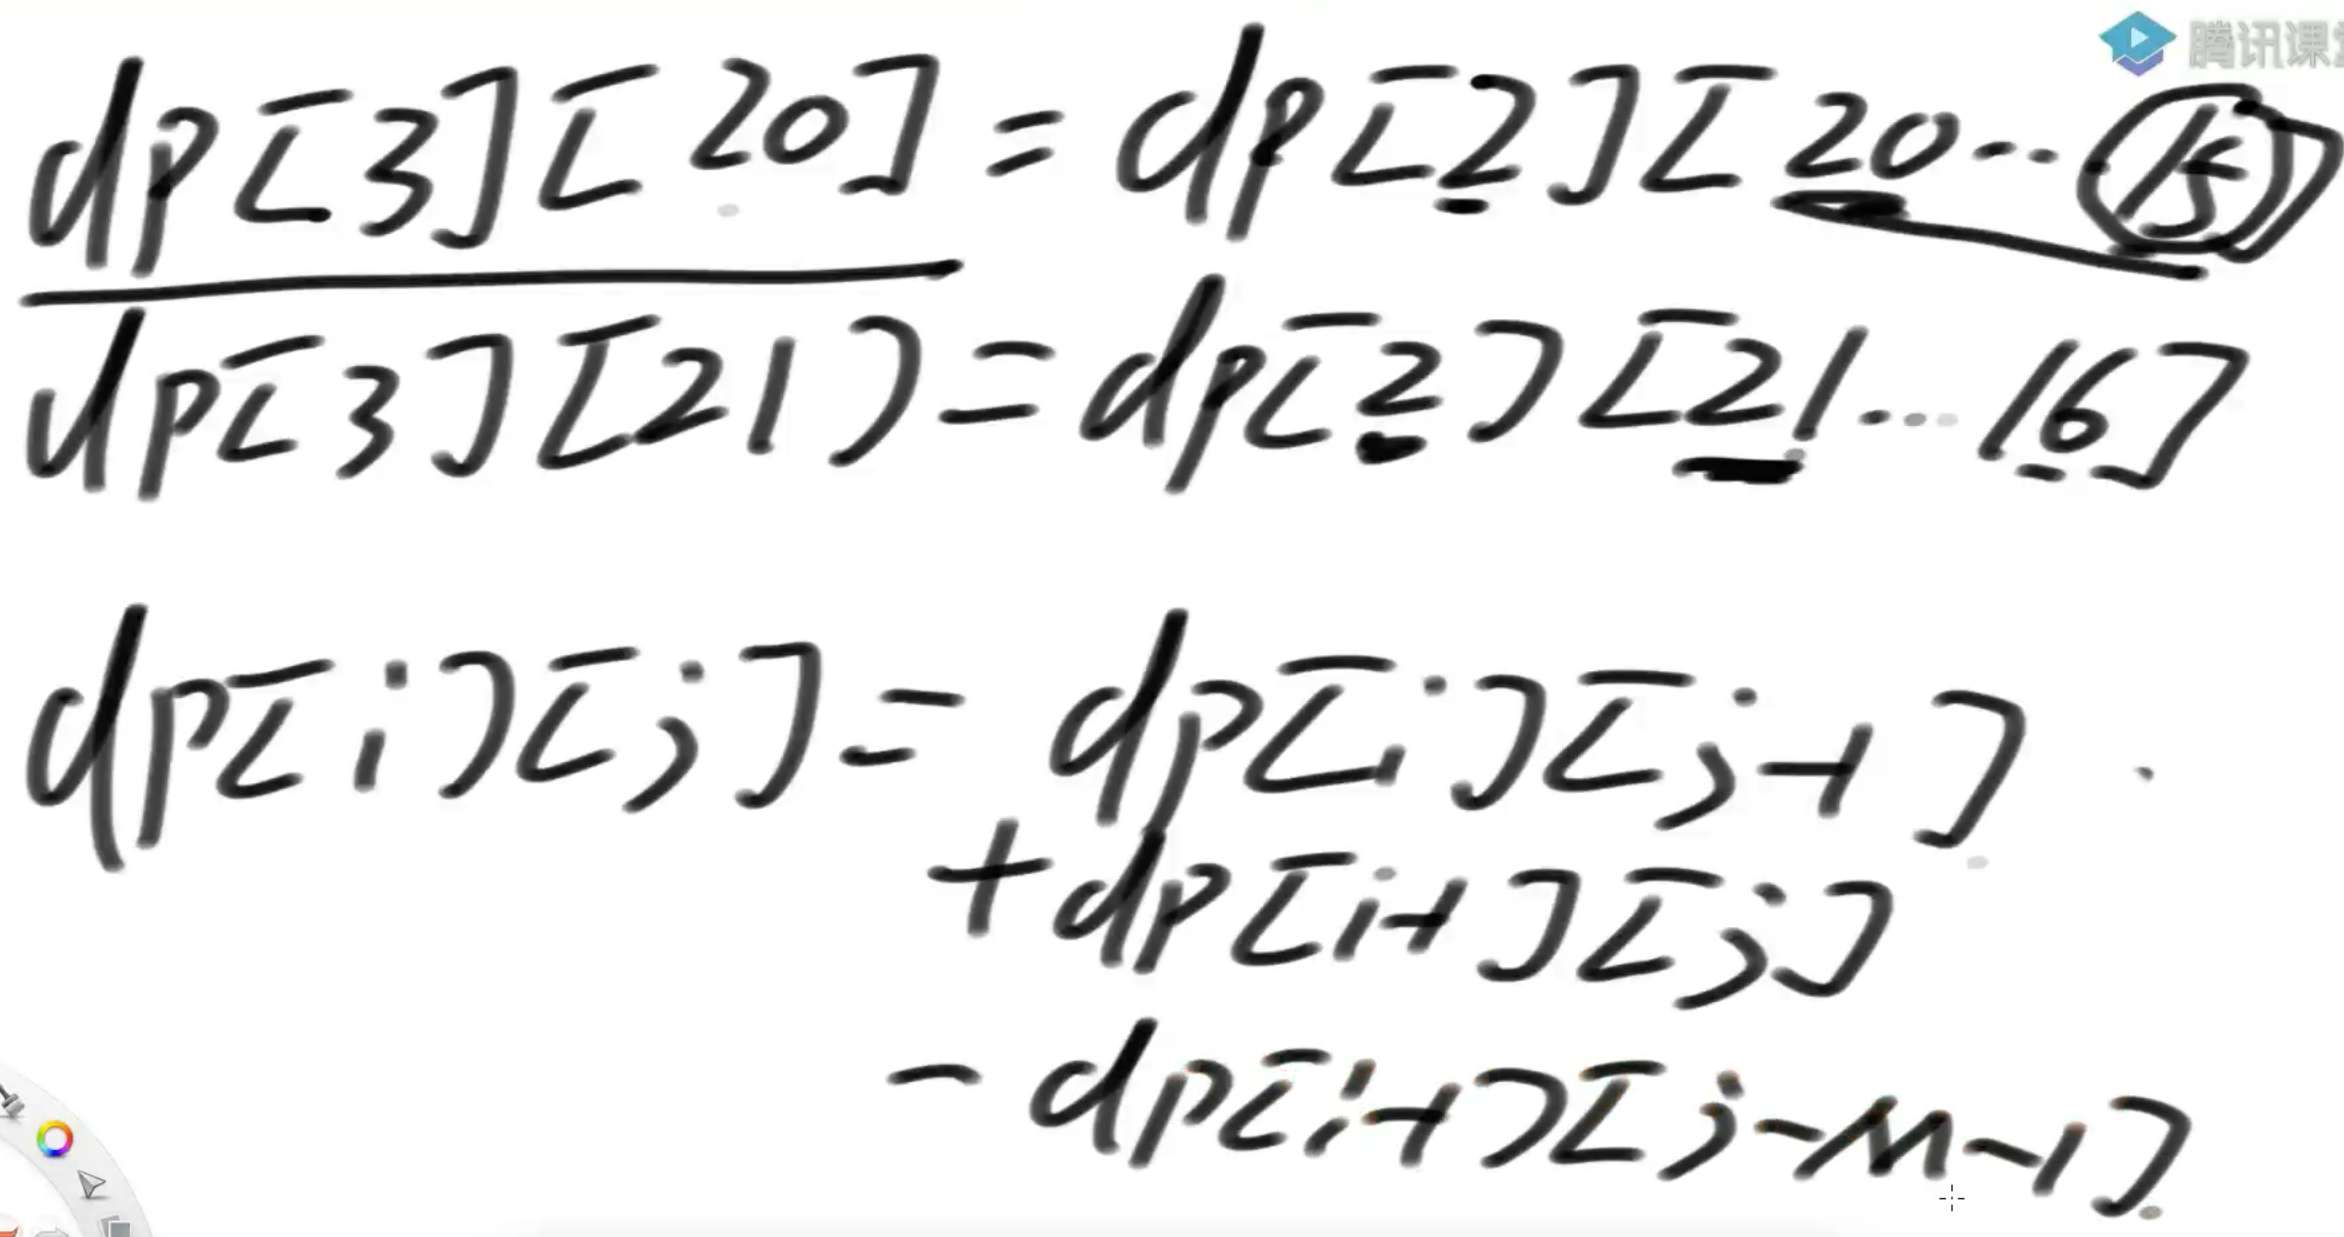 腾讯课
dp[3][20] = dp[2][20...15]
dp[3][21] = dp[2][21...16]
dp[i][j] = dp[i][j-1]
+ dp[i-1][j]
- dp[i-1][j-M-1]